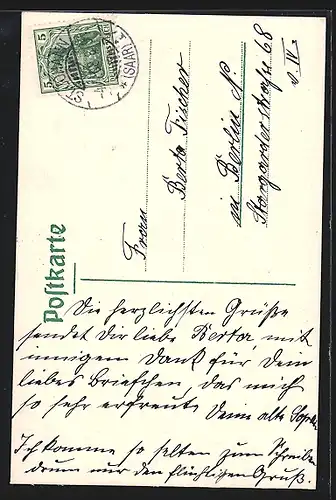 Postkarte
5 5
(SAAR)
Frau
Berta Fischer
in Berlin N.
Stargarder Straße 68
v. IV.
Die herzlichsten Grüße
sendet Dir liebe Berta, mit
innigem Dank für Dein
liebes Briefchen, das mich
so sehr erfreute. Deine alte
Ich komme so selten zum Schreiben
drum nur den flüchtigen Gruß.